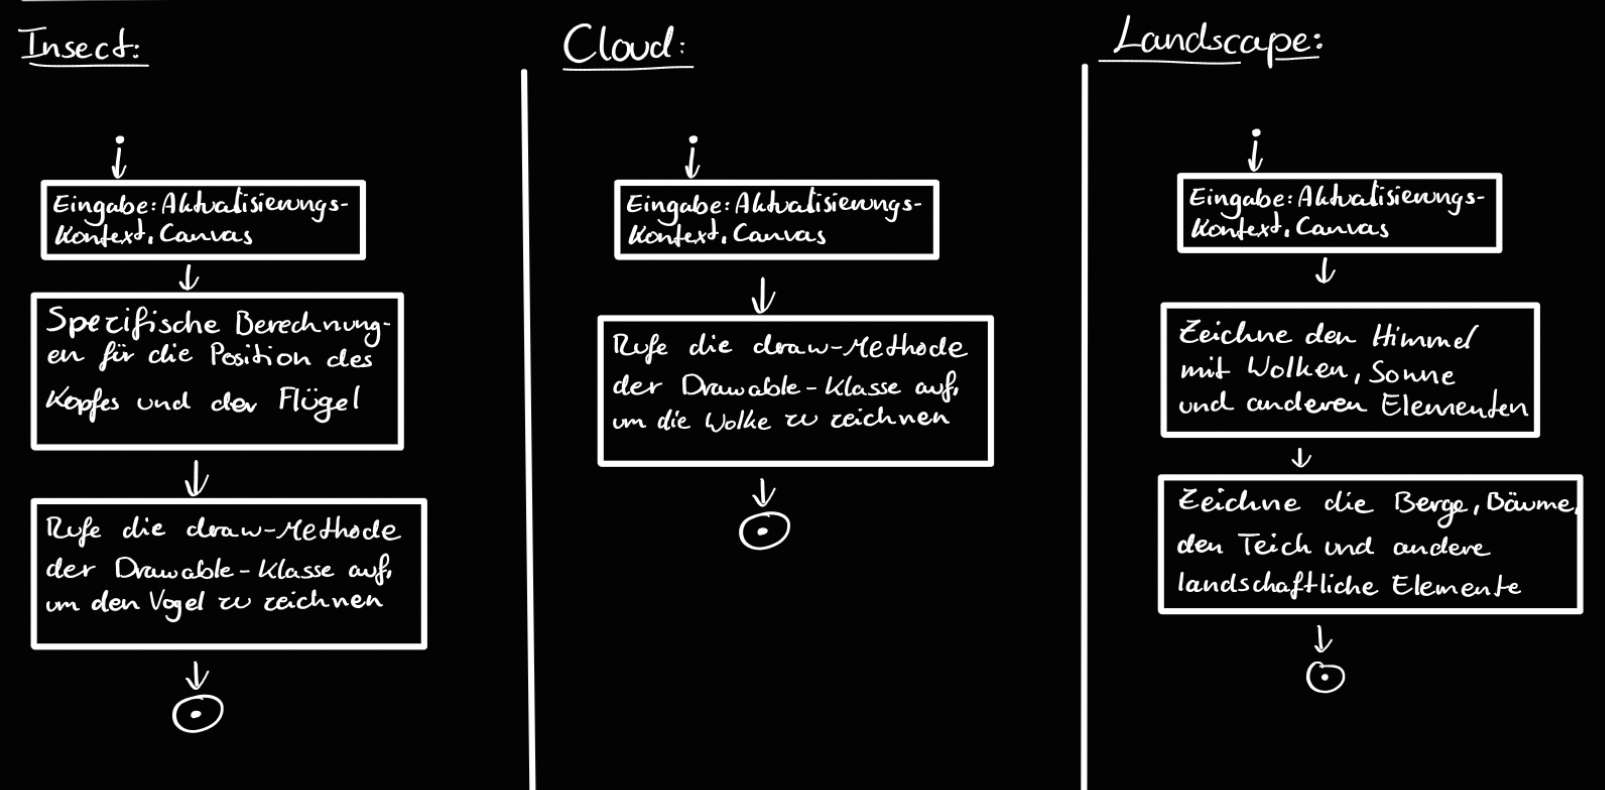 Insect:
Eingabe: Aktualisierungs-
Kontext, Canvas
Spezifische Berechnung-
en für die Position des
Kopfes und der Flügel
Rufe die draw-Methode
der Drawable-Klasse auf,
um den Vogel zu zeichnen
Cloud:
Eingabe: Aktualisierungs-
Kontext, Canvas
Rufe die draw-Methode
der Drawable-Klasse auf,
um die Wolke zu zeichnen
Landscape:
Eingabe: Aktualisierungs-
Kontext, Canvas
Zeichne den Himmel
mit Wolken, Sonne
und anderen Elementen
Zeichne die Berge, Bäume,
den Teich und andere
landschaftliche Elemente